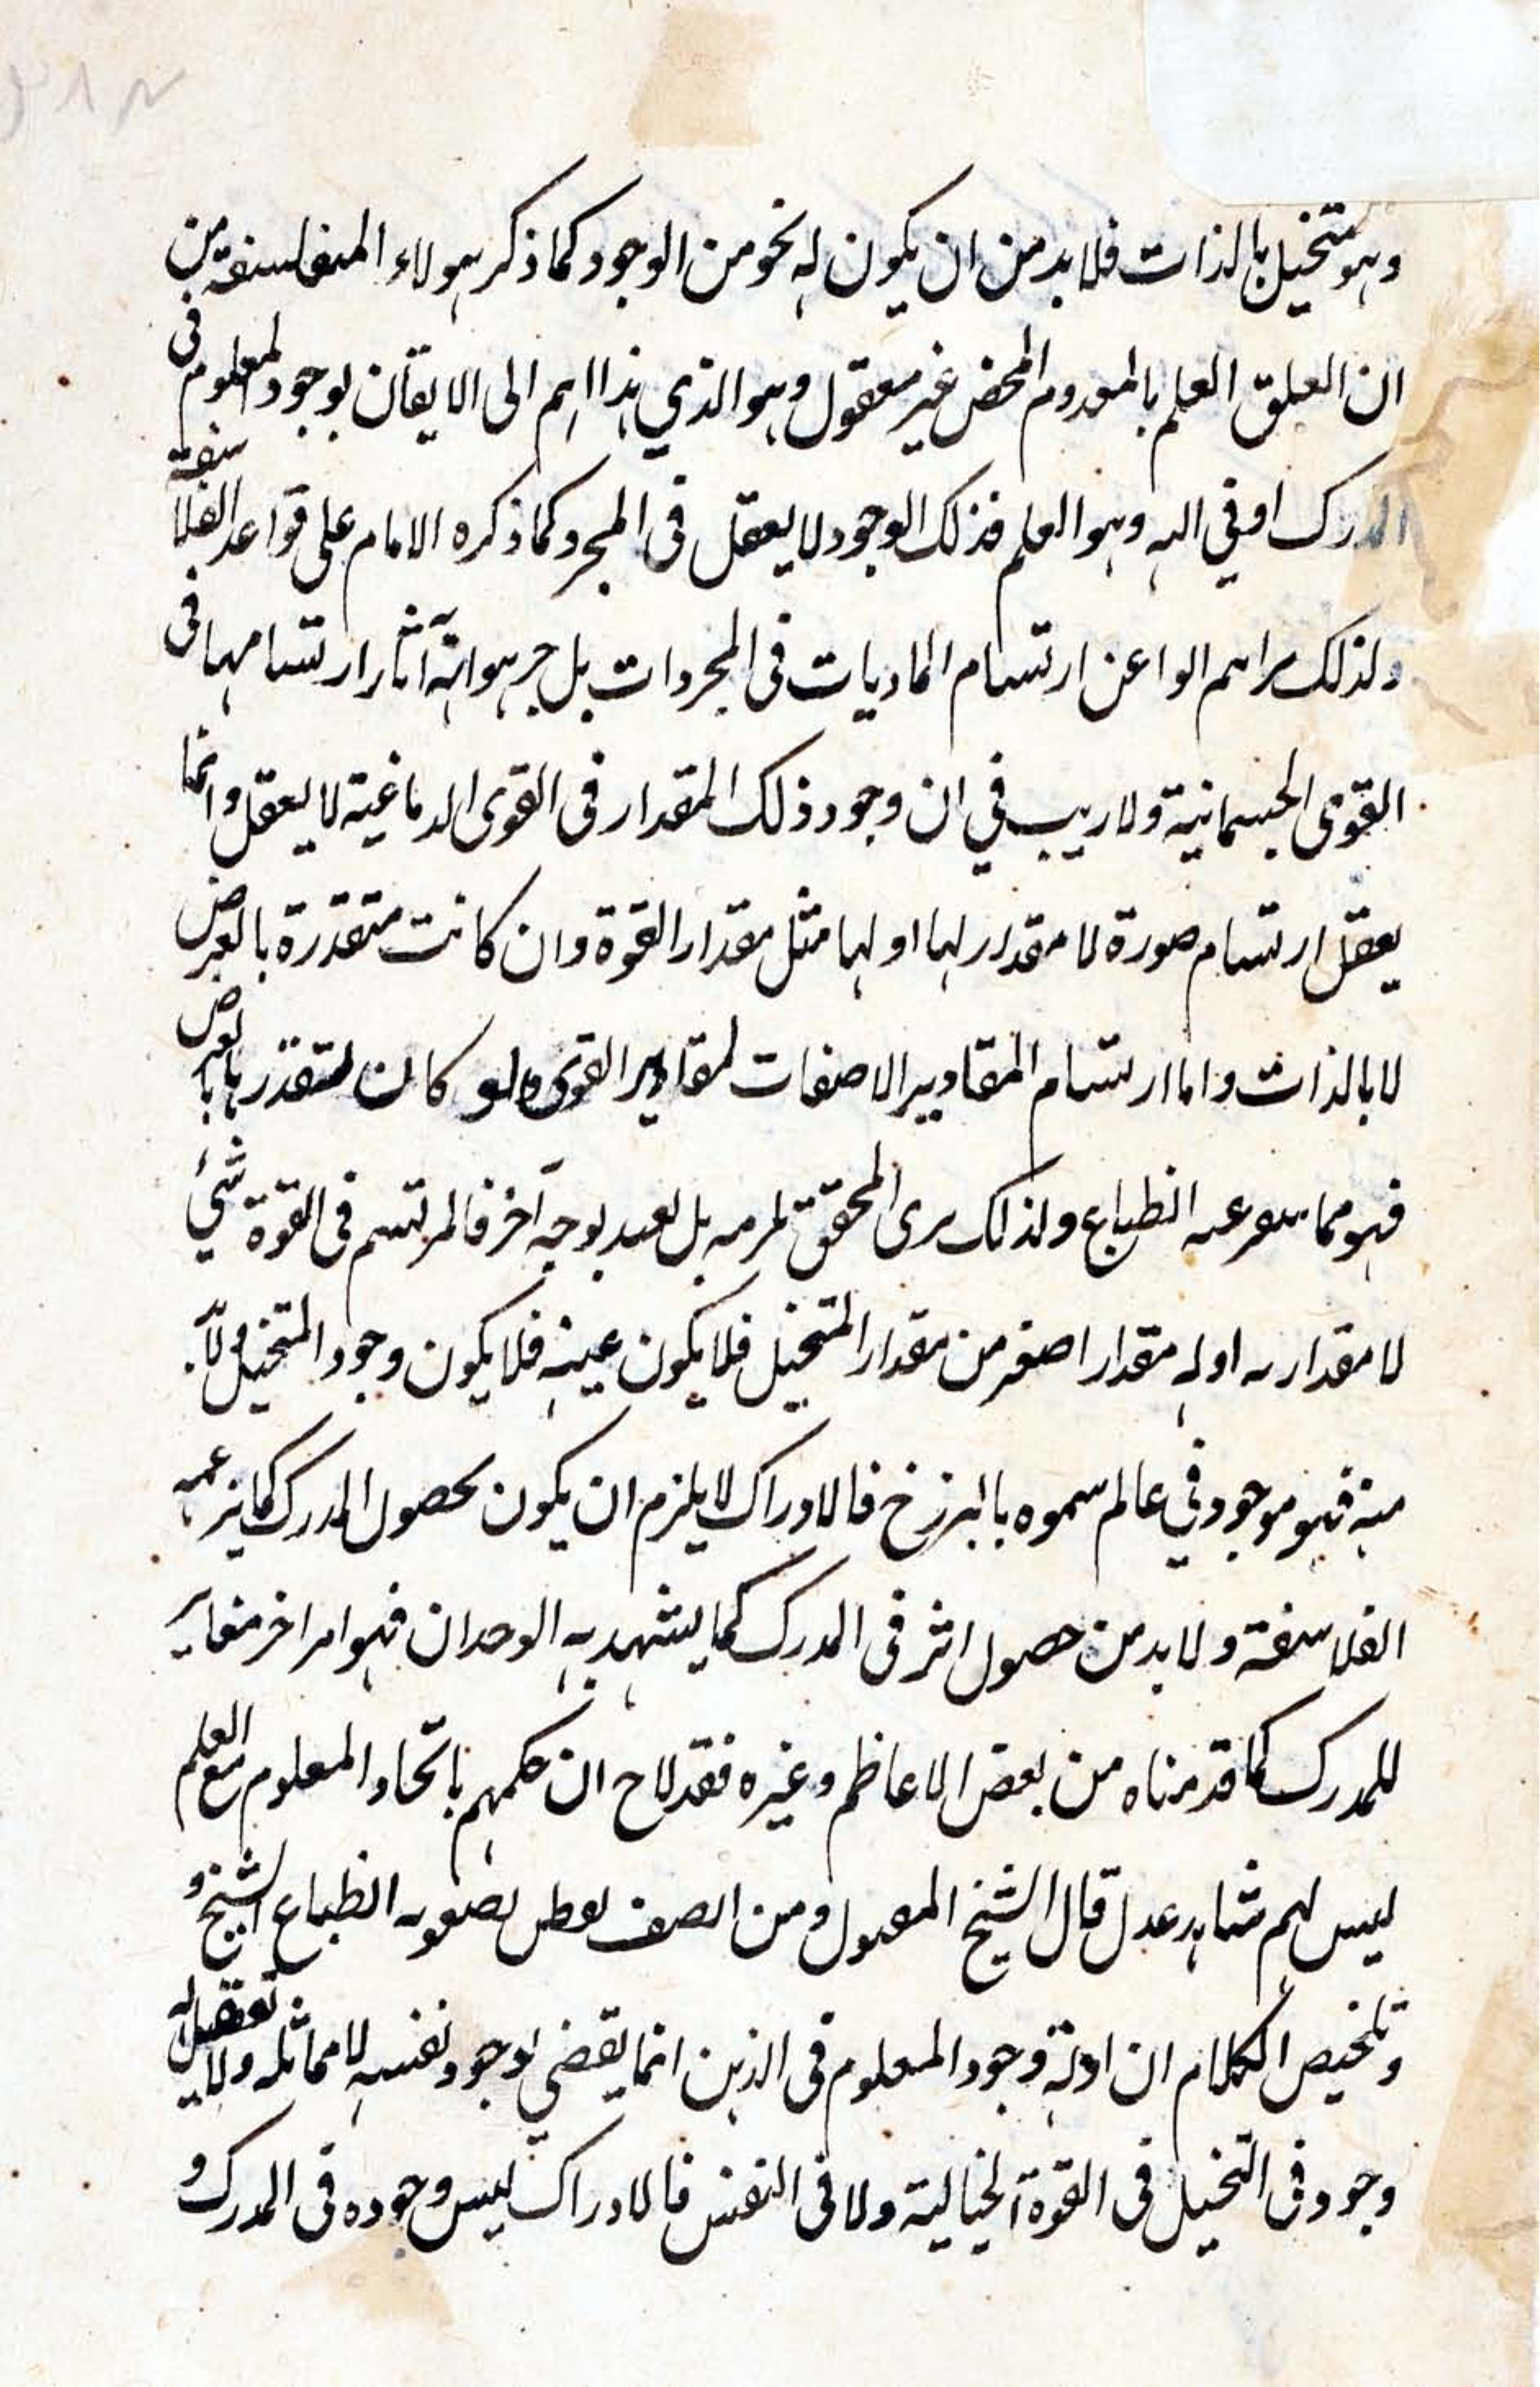 وهو متخيل بالذات فلا بد من ان يكون له نحو من الوجود كما ذكر هولاء المتفلسفة من
ان العلق العلم بالمعدوم المحض غير معقول وهو الذي هذا اهم الى الايقان بوجود المعلوم في
المدرك او في اليه وهو العلم فذلك الوجود لا يعقل في المجرد كما ذكره الامام على قواعد الفلاسفة
ولذلك الوا عن ارتسام الماديات في المجردات بل ارتسامها في
القوى الجسمانية ولا ريب في ان وجود ذلك المقدار في القوى الدماغية لا يعقل وانما
يعقل ارتسام صورة لا مقدار لها او لها مثل مقدار القوة وان كانت متقدرة بالعرض
لا بالذات واما ارتسام المقادير الاصفات لمقادير القوى ولو كان بالعرض
فهو مما الطباع ولذلك يرى المحقق بل بوجه آخر فالمرتسم في القوة شيء
لا مقدار له او له مقدار اصغر من مقدار المتخيل فلا يكون عينه فلا يكون وجود المتخيل ولا
منه فهو موجود في عالم سموه بالبرزخ فالادراك لا يلزم ان يكون بحصول المدرك كما يزعمه
الفلاسفة ولا بد من حصول اثر في المدرك كما يشهد به الوجدان فهو امر اخر مغاير
للمدرك كما قدمناه من بعض الاعاظم وغيره فقد لاح ان حكمهم باتحاد المعلوم مع العلم
ليس لهم شاهد عدل قال الشيخ المقبول ومن انصف انطباع الشبح و
وتلخيص الكلام ان ادلة وجود المعلوم في الذهن انما يقضي لوجود نفسه لا مماثله ولا
وجود في التخيل في القوة الخيالية ولا في النفس فالادراك ليس وجوده في المدرك و